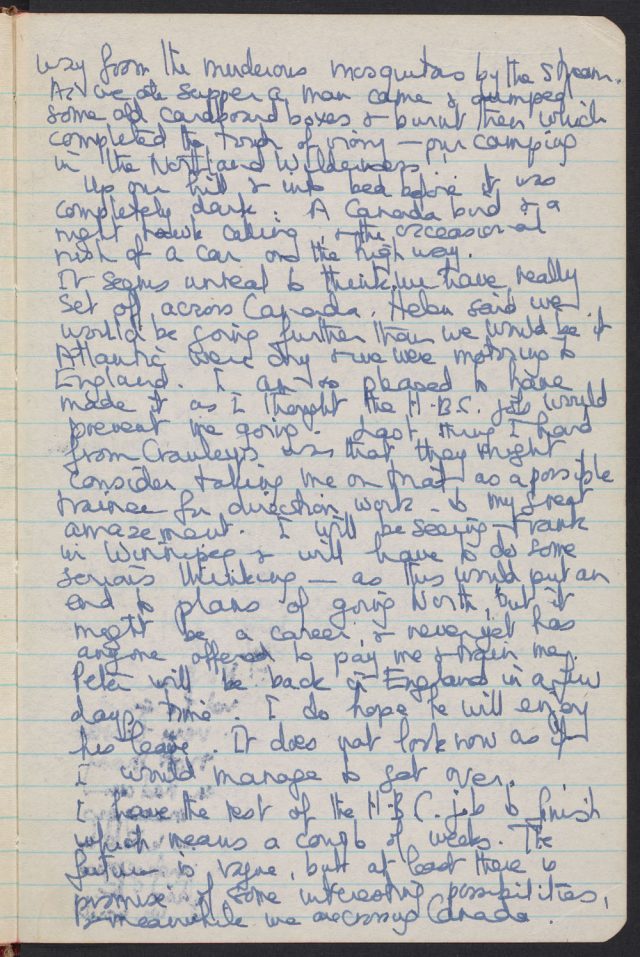 way from the murderous mosquitoes by the stream.
As we ate supper a man came & dumped
some old cardboard boxes & burnt them which
completed the touch of irony — our camping
in the Northland Wilderness.
Up our hill & into bed before it was
completely dark. A Canada bird & a
night hawk calling, & the occasional
rush of a car on the highway.
It seems unreal to think we have really
set off across Canada. Helen said we
would be going further than we would be if
Atlantic were dry & we were motoring to
England. I am so pleased to have
made it as I thought the H.B.C. job would
prevent me going. Last thing I heard
from Crawleys was that they might
consider taking me on that as a possible
trainee for direction work - to my great
amazement. I will be seeing Frank
in Winnipeg & will have to do some
serious thinking — as this would put an
end to plans of going North, but it
might be a career, & never yet has
anyone offered to pay me & train me.
Peter will be back in England in a few
days time. I do hope he will enjoy
his leave. It does not look now as if
I would manage to get over.
I have the rest of the H.B.C. job to finish
which means a couple of weeks. The
future is vague, but at least there is
promise of some interesting possibilities,
& meanwhile we are crossing Canada.